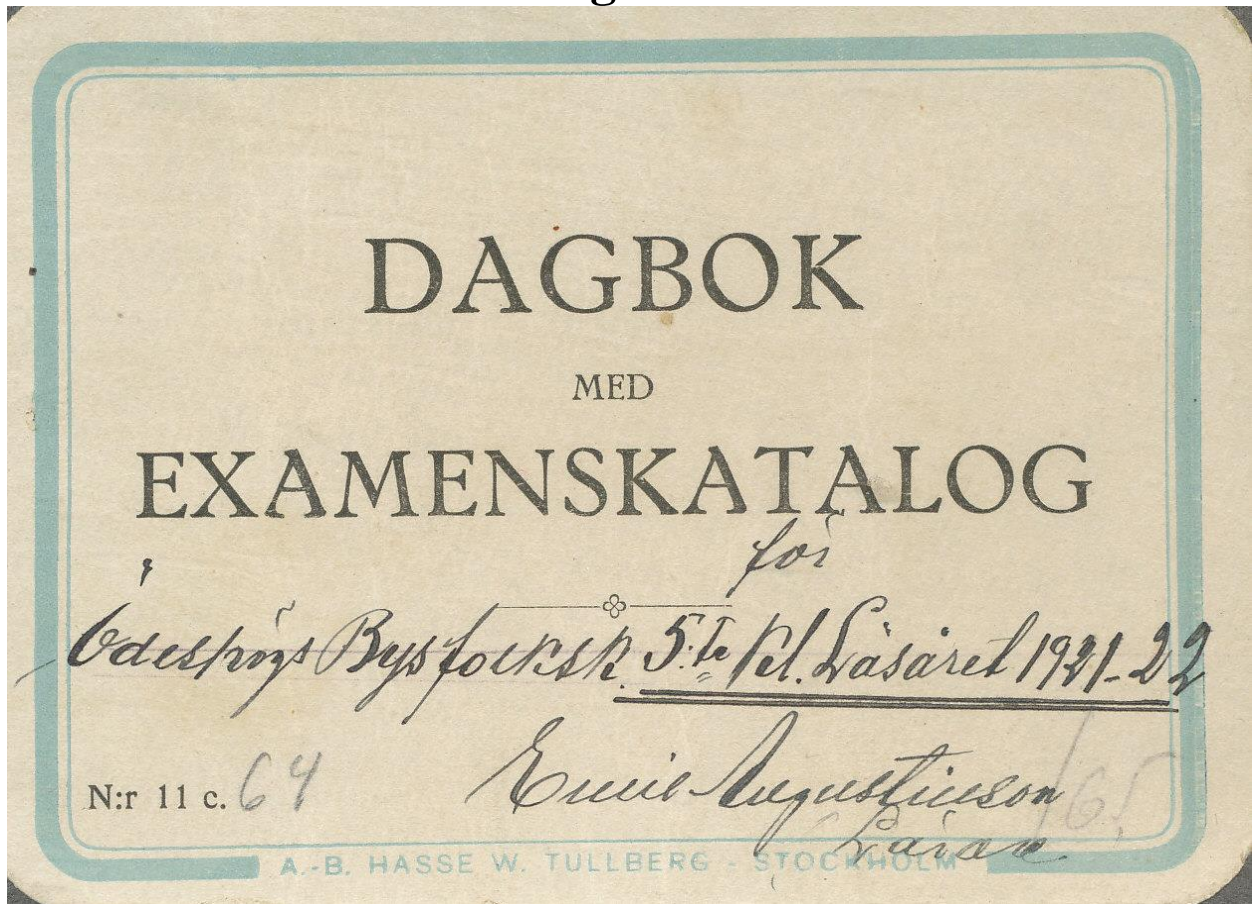 DAGBOK
MED
EXAMENSKATALOG
för
Ödeshögs Bys folksk. 5:te kl. Läsåret 1921-22
N:r 11 c. 64
Emil Augustinson
Lärare
A.-B. HASSE W. TULLBERG - STOCKHOLM